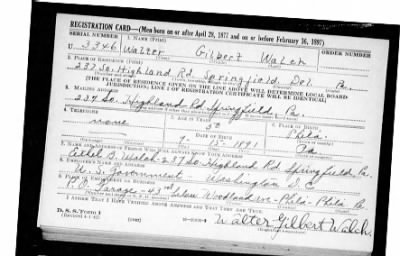 REGISTRATION CARD—(Men born on or after April 28, 1877 and on or before February 16, 1897)
SERIAL NUMBER 1. NAME (Print) ORDER NUMBER
U. 3346 Walter Gilbert Walch
2. PLACE OF RESIDENCE (Print)
237 So. Highland Rd. Springfield. Del. Pa.
[THE PLACE OF RESIDENCE GIVEN ON THE LINE ABOVE WILL DETERMINE LOCAL BOARD
JURISDICTION; LINE 2 OF REGISTRATION CERTIFICATE WILL BE IDENTICAL]
3. MAILING ADDRESS
237 So. Highland Rd Springfield Pa.
4. TELEPHONE 5. AGE IN YEARS 6. PLACE OF BIRTH
none 50 Phila.
DATE OF BIRTH
9- 13- 1891 Pa
7. NAME AND ADDRESS OF PERSON WHO WILL ALWAYS KNOW YOUR ADDRESS
Ethel B. Walch-237 So. Highland Rd Springfield Pa.
8. EMPLOYER'S NAME AND ADDRESS
U. S. Government - Washington D.C.
9. PLACE OF EMPLOYMENT OR BUSINESS
P. O. Garage - 43rd Woodland - Phila - Phila Pa
I AFFIRM THAT I HAVE VERIFIED ABOVE ANSWERS AND THAT THEY ARE TRUE.
D. S. S. Form 1
(Revised 4-1-42) (over) Walter Gilbert Walch